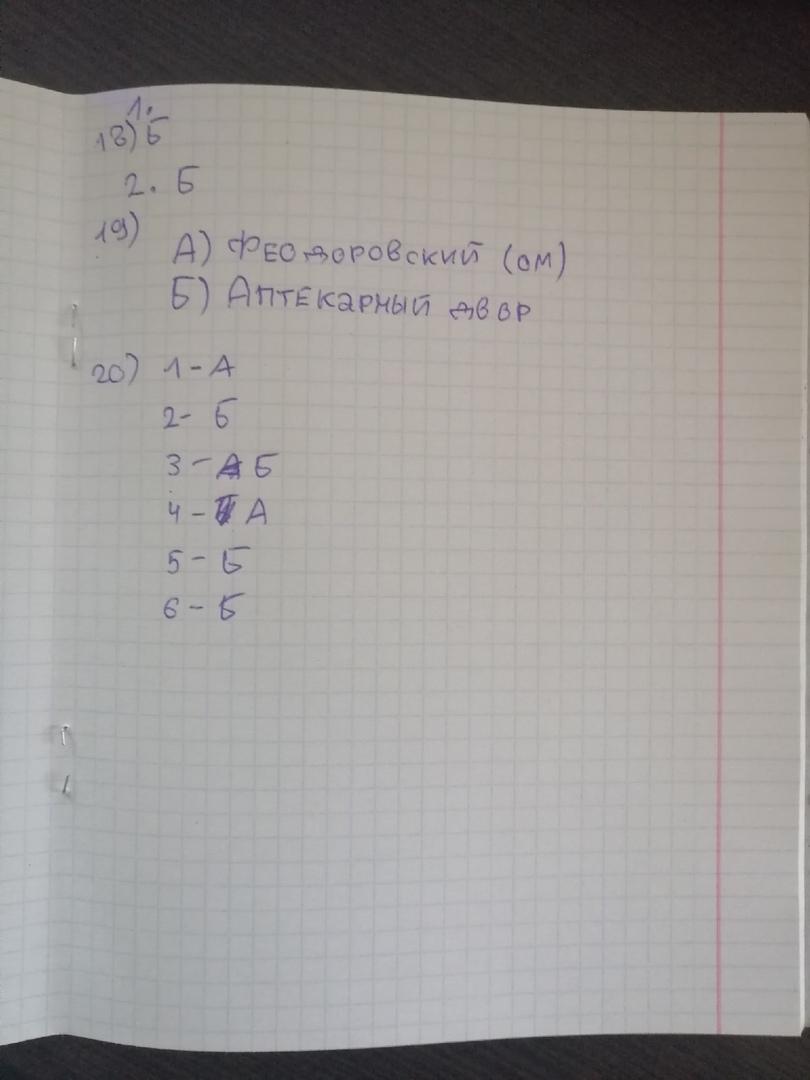 1.
18) Б
2. Б
19)
А) Феодоровский (ом)
Б) Аптекарный двор
20) 1 - А
2 - Б
3 - А Б
4 - А
5 - Б
6 - Б